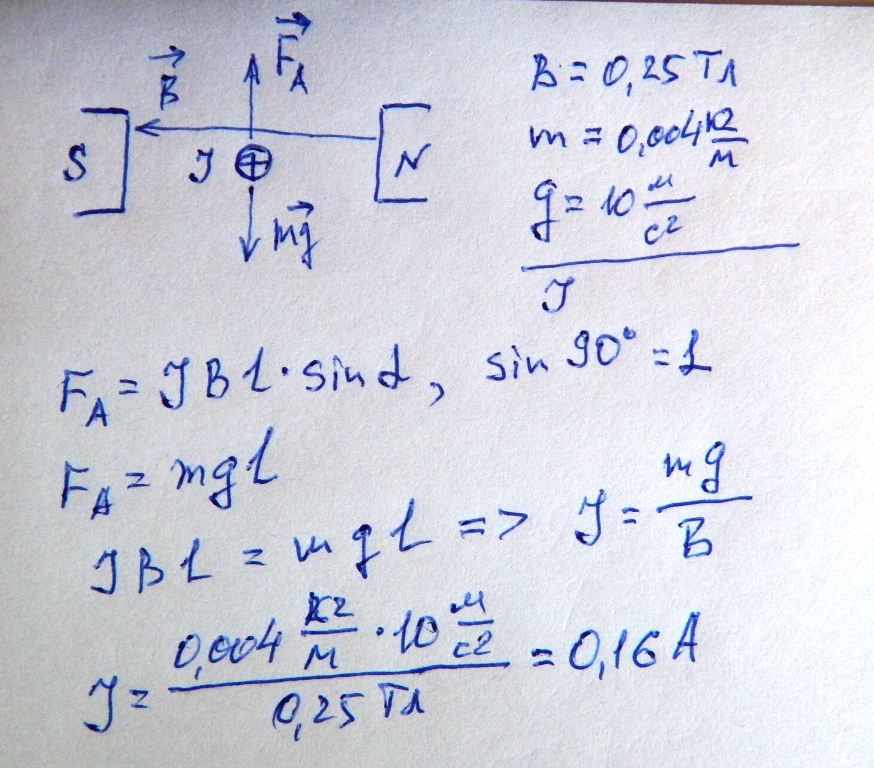 F⃗_A
B⃗
S J ⊕ N
m⃗g
B = 0,25 Тл
m = 0,004 кг/м
g = 10 м/с²
J
F_A = J B l · sin α, sin 90° = 1
F_A = m g l
J B l = m g l => J = mg/B
J = (0,004 кг/м · 10 м/с²)/(0,25 Тл) = 0,16 А